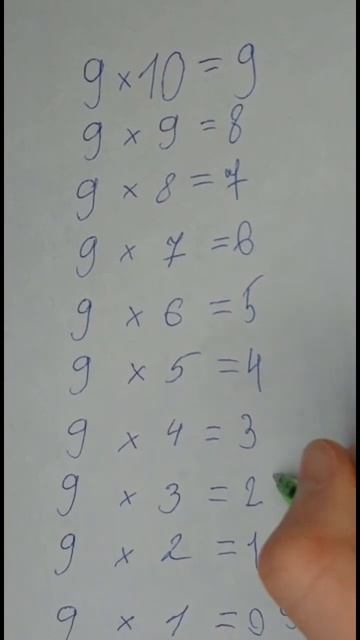 9 × 10 = 9
9 × 9 = 8
9 × 8 = 7
9 × 7 = 6
9 × 6 = 5
9 × 5 = 4
9 × 4 = 3
9 × 3 = 2
9 × 2 = 1
9 × 1 = 09